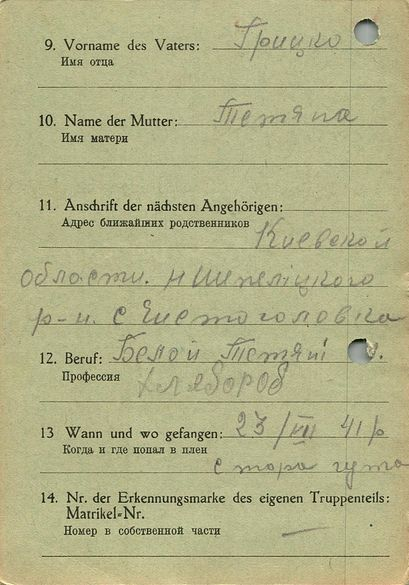 9. Vorname des Vaters: Грицко
Имя отца
10. Name der Mutter: Тетяна
Имя матери
11. Anschrift der nächsten Angehörigen:
Адрес ближайших родственников Киевской
области. Н Шепеліцкого
р-н. с Чистоголовка
12. Beruf: Белой Тетяні
Профессия хлябороб
13 Wann und wo gefangen: 23/VIII 41р
Когда и где попал в плен
с тара гута
14. Nr. der Erkennungsmarke des eigenen Truppenteils:
Matrikel-Nr.
Номер в собственной части —